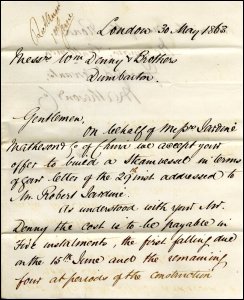 London 30 May 1863.
Messrs Wm Denny & Brothers
Dumbarton
Gentlemen,
On behalf of Messrs Jardine
Matheson & Co of China we accept your
offer to build a Steam vessel in terms
of your letter of the 29th inst addressed to
Mr Robert Jardine
its understood with your Mr
Denny the cost is to be payable in
Five instalments, the first falling due
on the 15th June and the remaining
four at periods of the construction